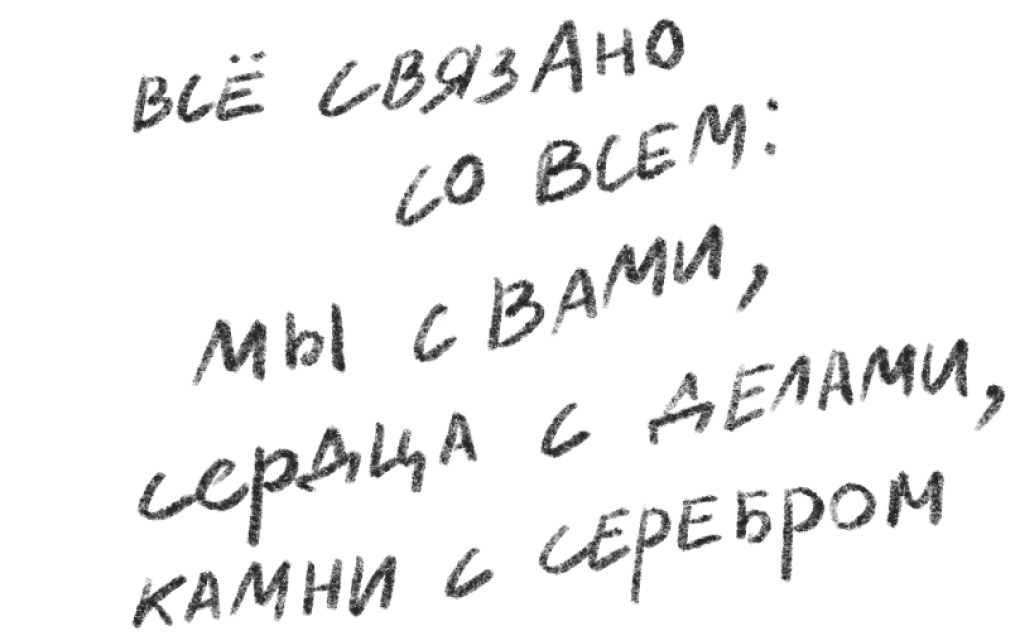 ВСЁ СВЯЗАНО
СО ВСЕМ:
МЫ С ВАМИ,
СЕРДЦА С ДЕЛАМИ,
КАМНИ С СЕРЕБРОМ